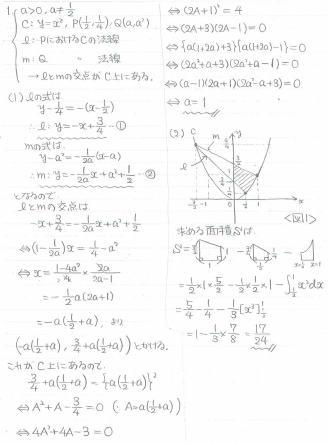 1. a>0, a≠1/2
C: y=x², P(1/2, 1/4), Q(a, a²)
l: PにおけるCの法線
m: Q 〃 法線
→ lとmの交点がC上にある。
(1) lの式は
y-1/4=-(x-1/2)
∴ l: y=-x+3/4 —①
mの式は
y-a²=-1/2a(x-a)
∴ m: y=-1/2a x+a²+1/2 —②
となるので
lとmの交点は
-x+3/4=-1/2a x+a²+1/2
⇔(1-1/2a)x=1/4-a²
⇔ x=1-4a²/4 × 2a/2a-1
=-1/2 a(2a+1)
=-a(1/2+a), より
(-a(1/2+a), 3/4+a(1/2+a)) とかける。
これがC上にあるので
3/4+a(1/2+a)={a(1/2+a)}²
⇔ A²+A-3/4=0 (∵ A=a(1/2+a))
⇔ 4A²+4A-3=0
⇔ (2A+1)²=4
⇔ (2A+3)(2A-1)=0
⇔ {a(1+2a)+3}{a(1+2a)-1}=0
⇔ (2a²+a+3)(2a²+a-1)=0
⇔ (a-1)(2a+1)(2a²-a+3)=0
⇔ a=1
(2)
C
m
y
l
x
<図1>
求める面積Sは
S=
=1/2×1×5/2-1/2×1/2×1-∫x²dx
=5/4-1/4-1/3[x³]
=1-1/3×7/8=17/24